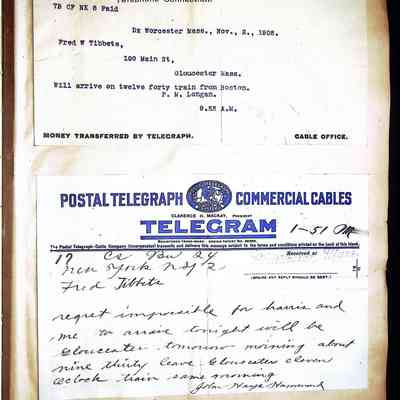 TELEPHONE CONNECTION.
7B CF NX 8 Paid
Dx Worcester Mass., Nov., 2., 1908.
Fred W Tibbets,
100 Main St,
Gloucester Mass.
Will arrive on twelve forty train from Boston.
P. M. Langan.
9.55 A.M.
MONEY TRANSFERRED BY TELEGRAPH.
CABLE OFFICE.
POSTAL TELEGRAPH COMMERCIAL CABLES
CLARENCE H. MACKAY, PRESIDENT
TELEGRAM
1-51 PM
The Postal Telegraph-Cable Company (Incorporated) transmits and delivers this message subject to the terms and conditions printed on the back of this blank.
17 Cs Bu 24
Received at
New York NY 2
(WHERE ANY REPLY SHOULD BE SENT.)
Fred Tibbets
regret impossible for harris and
me to arrive tonight will be
Gloucester tomorow morning about
nine thirty leave Gloucester eleven
oclock train same morning
John Hays Hammond